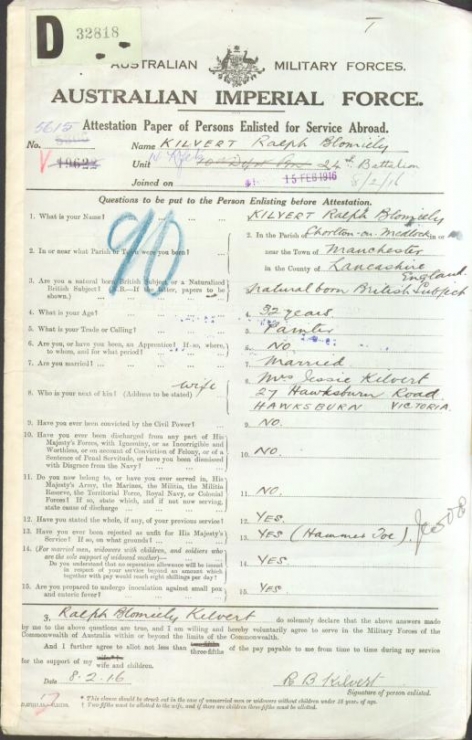 D 32818
AUSTRALIAN MILITARY FORCES.
AUSTRALIAN IMPERIAL FORCE.
Attestation Paper of Persons Enlisted for Service Abroad.
No. 5615 Name KILVERT Ralph Blomiely
19622 Unit 24th Battalion
Joined on 15 FEB 1916 8/2/16
Questions to be put to the Person Enlisting before Attestation.
1. What is your Name? KILVERT Ralph Blomiely
2. In or near what Parish or Town were you born? 2. In the Parish of Chorlton-on Medlock in or
near the Town of Manchester
in the County of Lancashire England
3. Are you a natural born British Subject or a Naturalized
British Subject? N.B.—If the latter, papers to be
shown.)
natural born British Subject
4. What is your Age? 4. 32 years
5. What is your Trade or Calling? 5. Painter
6. Are you, or have you been, an Apprentice? If so, where,
to whom, and for what period? 6. NO.
7. Are you married? 7. Married
8. Who is your next of kin? (Address to be stated) wife
8. Mrs Jessie Kilvert
27 Hawksburn Road
HAWKSBURN VICTORIA.
9. Have you ever been convicted by the Civil Power? 9. NO.
10. Have you ever been discharged from any part of His
Majesty's Forces, with Ignominy, or as Incorrigible and
Worthless, or on account of Conviction of Felony, or of a
Sentence of Penal Servitude, or have you been dismissed
with Disgrace from the Navy? 10. NO.
11. Do you now belong to, or have you ever served in, His
Majesty's Army, the Marines, the Militia, the Militia
Reserve, the Territorial Force, Royal Navy, or Colonial
Forces? If so, state which, and if not now serving,
state cause of discharge 11. NO
12. Have you stated the whole, if any, of your previous service? 12. YES.
13. Have you ever been rejected as unfit for His Majesty's
Service? If so, on what grounds? 13. YES (Hammer Toe).
14. (For married men, widowers with children, and soldiers who
are the sole support of widowed mother)—
Do you understand that no separation allowance will be issued
in respect of your service beyond an amount which
together with pay would reach eight shillings per day? 14. YES.
15. Are you prepared to undergo inoculation against small pox
and enteric fever? 15. YES.
90
I, Ralph Blomiely Kilvert do solemnly declare that the above answers made
by me to the above questions are true, and I am willing and hereby voluntarily agree to serve in the Military Forces of the
Commonwealth of Australia within or beyond the limits of the Commonwealth.
And I further agree to allot not less than three-fifths of the pay payable to me from time to time during my service
for the support of my wife and children.
Date 8.2.16 R B Kilvert
Signature of person enlisted.
* This clause should be struck out in the case of unmarried men or widowers without children under 18 years of age.
† Two fifths must be allotted to the wife, and if there are children three-fifths must be allotted.